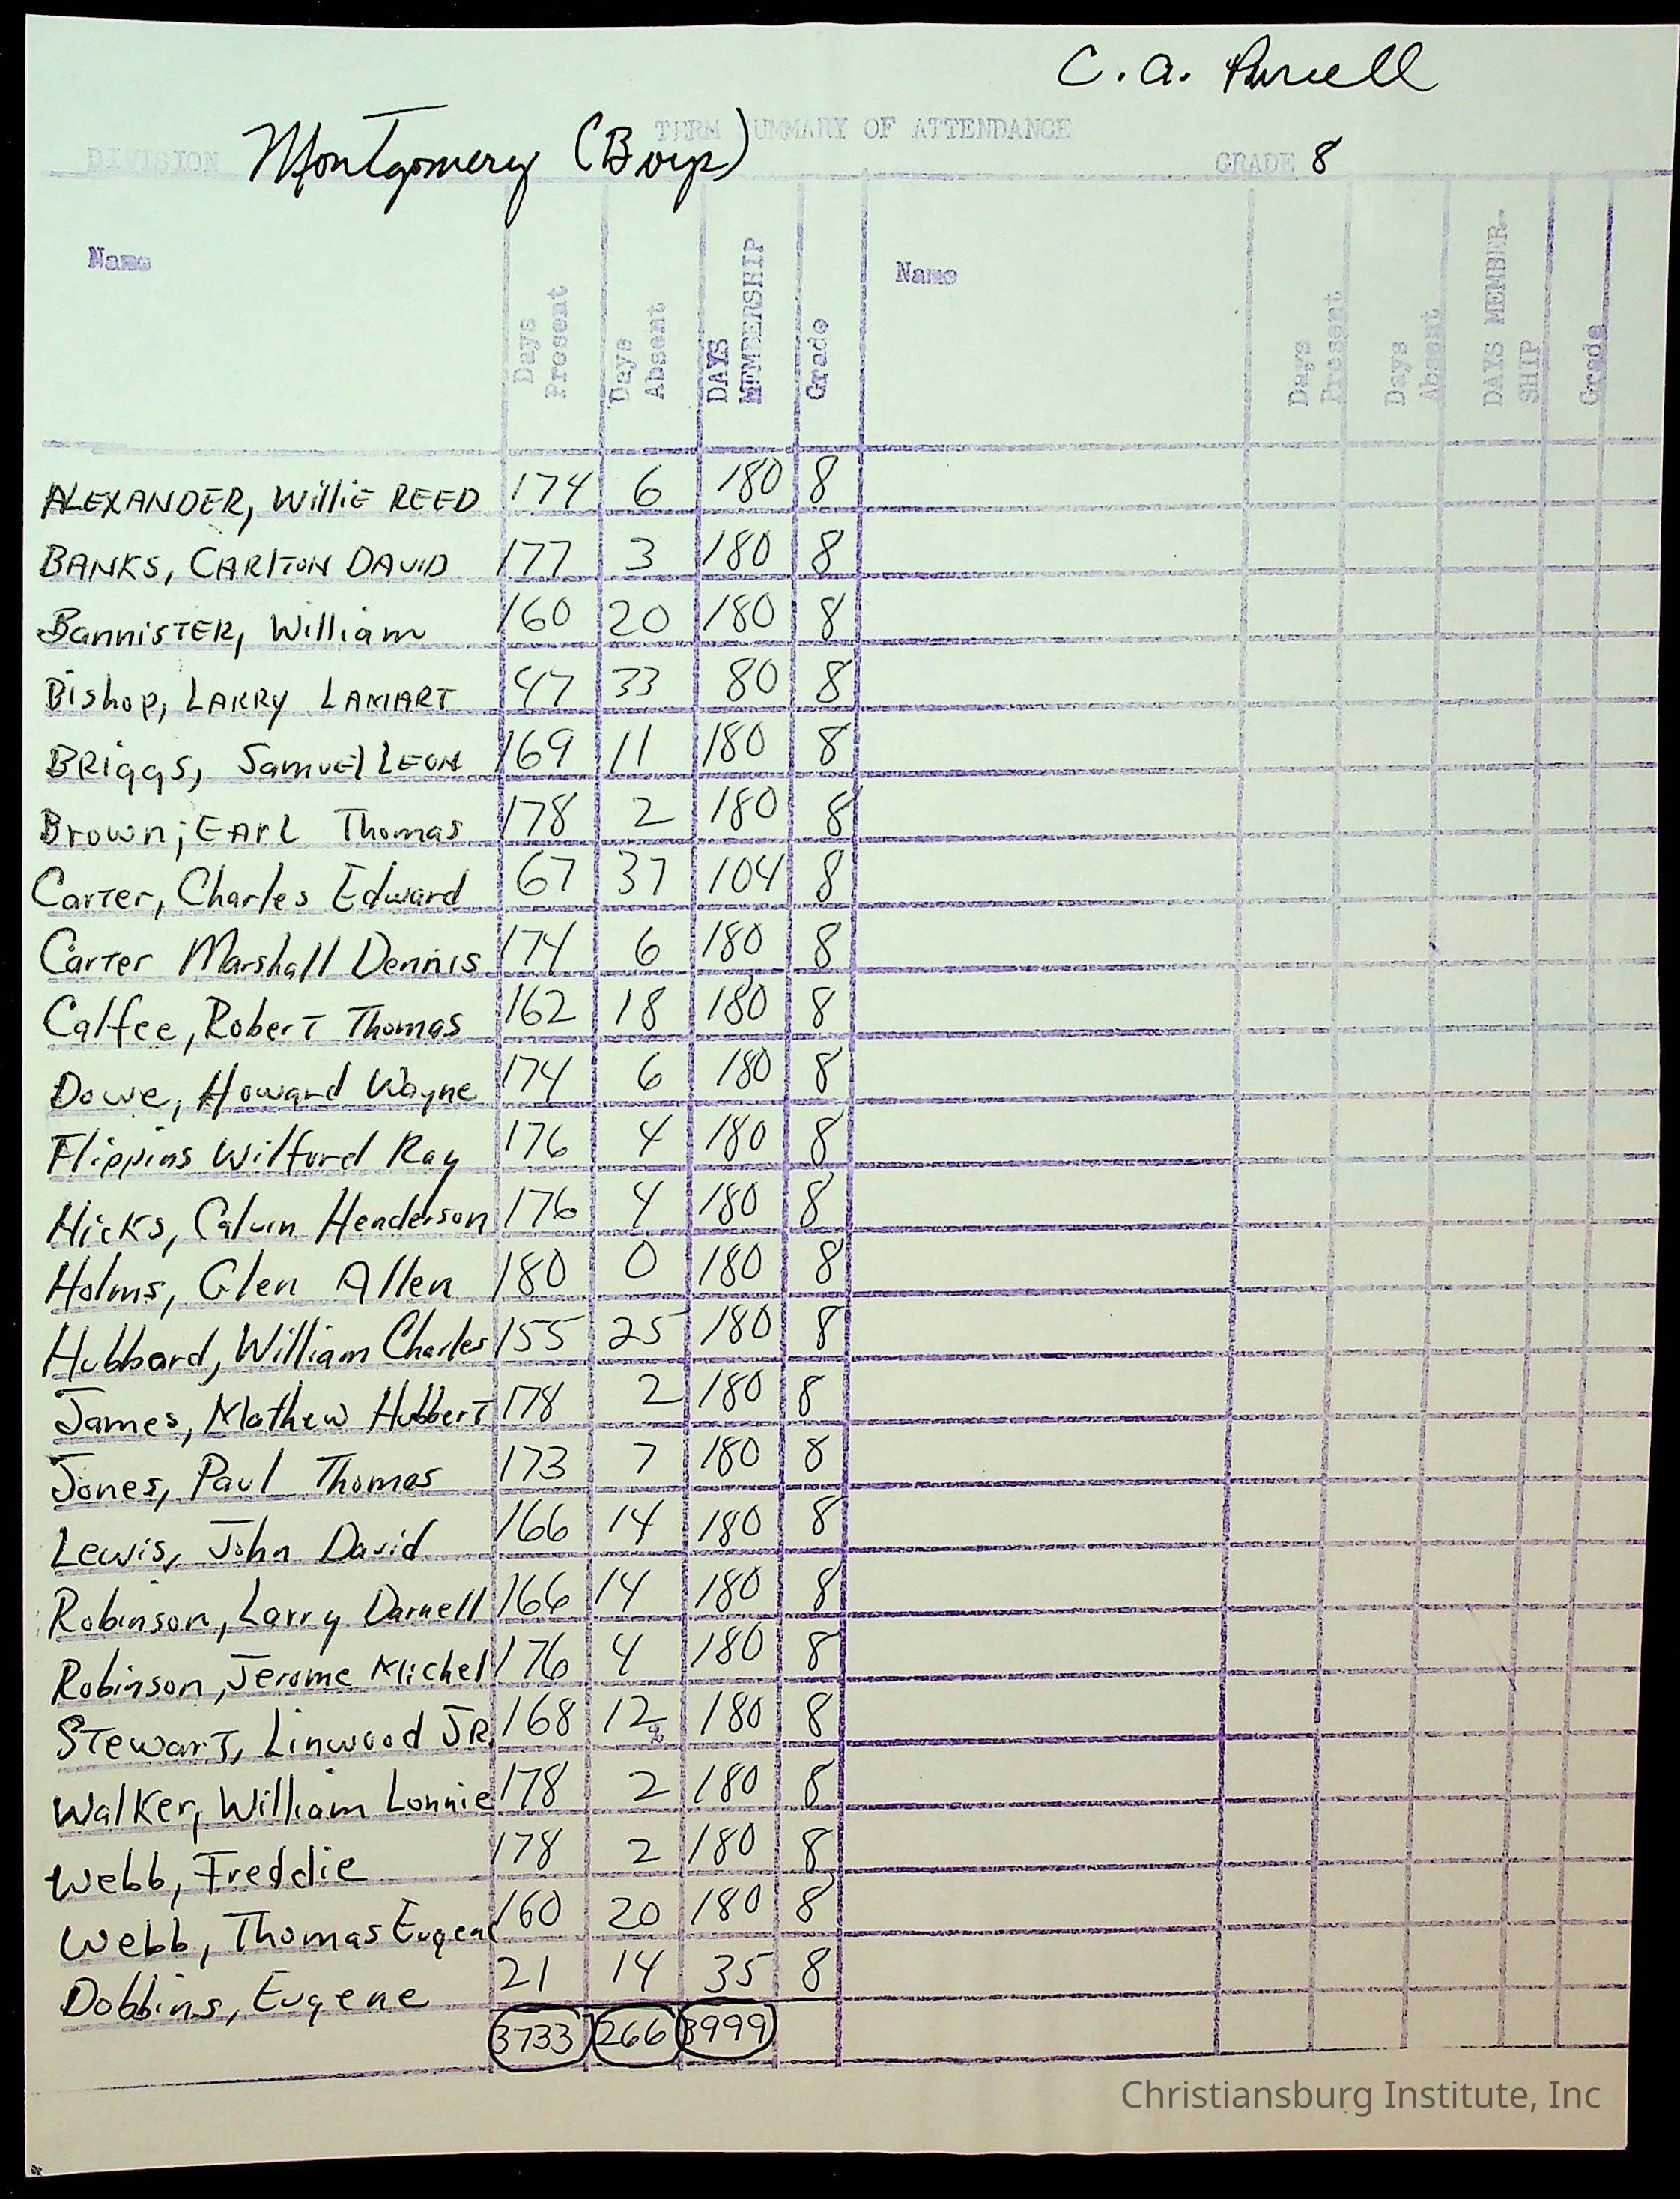 C. A. Pursell
TERM SUMMARY OF ATTENDANCE
DIVISION Montgomery (Boys) GRADE 8
Name Days Present Days Absent DAYS MEMBERSHIP Grade Name Days Present Days Absent DAYS MEMBER-SHIP Grade
ALEXANDER, WilliE REED 174 6 180 8
BANKS, CARlTON DAViD 177 3 180 8
BannisTER, William 160 20 180 8
Bishop, LARRY LAMART 47 33 80 8
BRiggs, SamuEl LEON 169 11 180 8
Brown; EArl Thomas 178 2 180 8
Carter, Charles Edward 67 37 104 8
Carter Marshall Dennis 174 6 180 8
Calfee, Robert Thomas 162 18 180 8
Dowe, Howard Wayne 174 6 180 8
Flippins Wilford Ray 176 4 180 8
Hicks, Calvin Henderson 176 4 180 8
Holms, Glen Allen 180 0 180 8
Hubbard, William Charles 155 25 180 8
James, Mathew Hubbert 178 2 180 8
Jones, Paul Thomas 173 7 180 8
Lewis, John David 166 14 180 8
Robinson, Larry Darnell 166 14 180 8
Robinson, Jerome Michel 176 4 180 8
Stewart, Linwood JR. 168 12 180 8
Walker, William Lonnie 178 2 180 8
Webb, Freddie 178 2 180 8
Webb, Thomas Eugene 160 20 180 8
Dobbins, Eugene 21 14 35 8
3733 266 3999
Christiansburg Institute, Inc